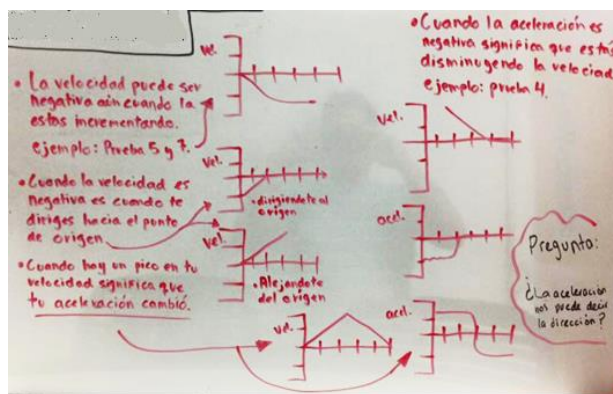 • La velocidad puede ser
negativa aún cuando la
estas incrementando.
ejemplo: Prueba 5 y 7.
• Cuando la velocidad es
negativa es cuando te
diriges hacia el punto
de origen
• Cuando hay un pico en tu
velocidad significa que
tu aceleración cambió.
vel.
vel.
• dirigiendote al
origen
vel.
• Alejandote
del origen
vel.
• Cuando la aceleración es
negativa significa que estás
disminuyendo la velocidad
ejemplo: prueba 4.
vel.
acel.
acel.
Pregunta:
¿La aceleración
nos puede decir
la dirección?